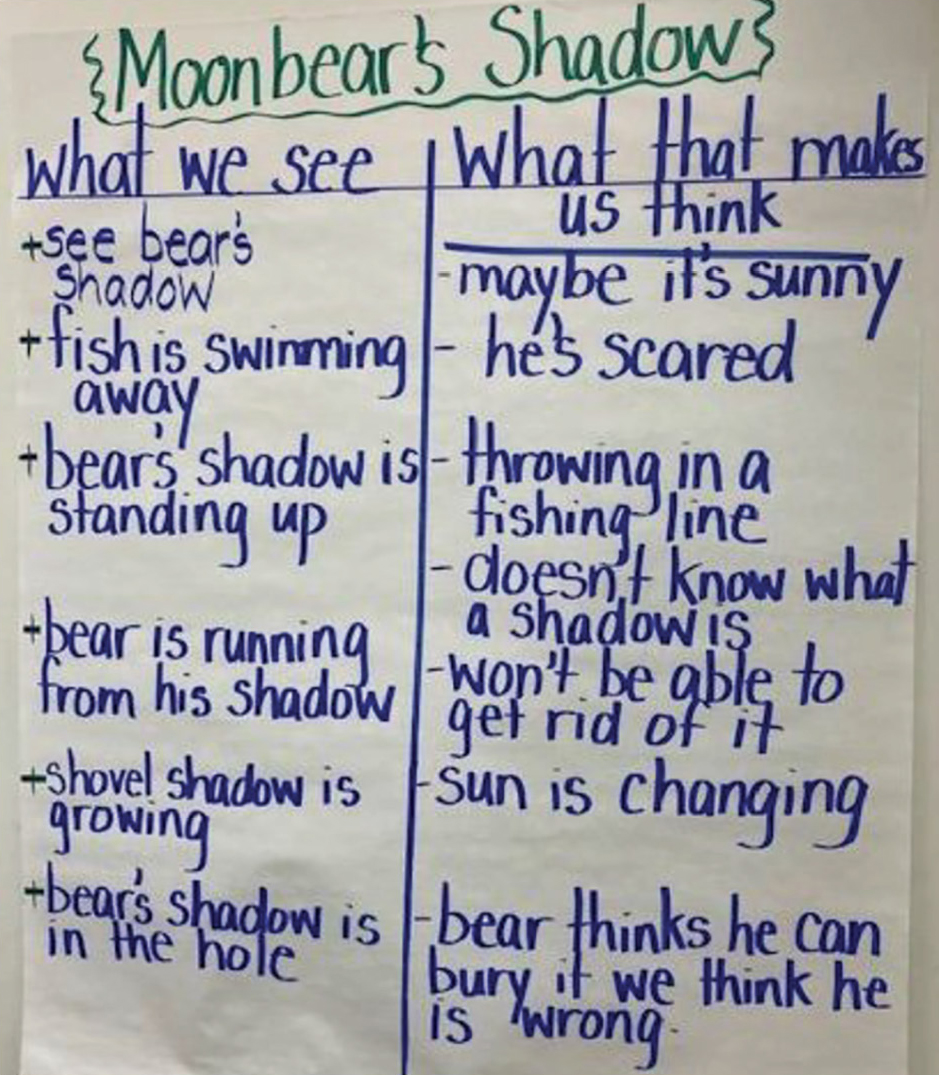 {Moonbear's Shadow}
What we see
+see bear's
shadow
+fish is swimming
away
+bear's shadow is
standing up
+bear is running
from his shadow
+shovel shadow is
growing
+bear's shadow is
in the hole
What that makes
us think
-maybe it's sunny
- he's scared
- throwing in a
fishing line
- doesn't know what
a shadow is
-won't be able to
get rid of it
-sun is changing
-bear thinks he can
bury it we think he
is wrong.